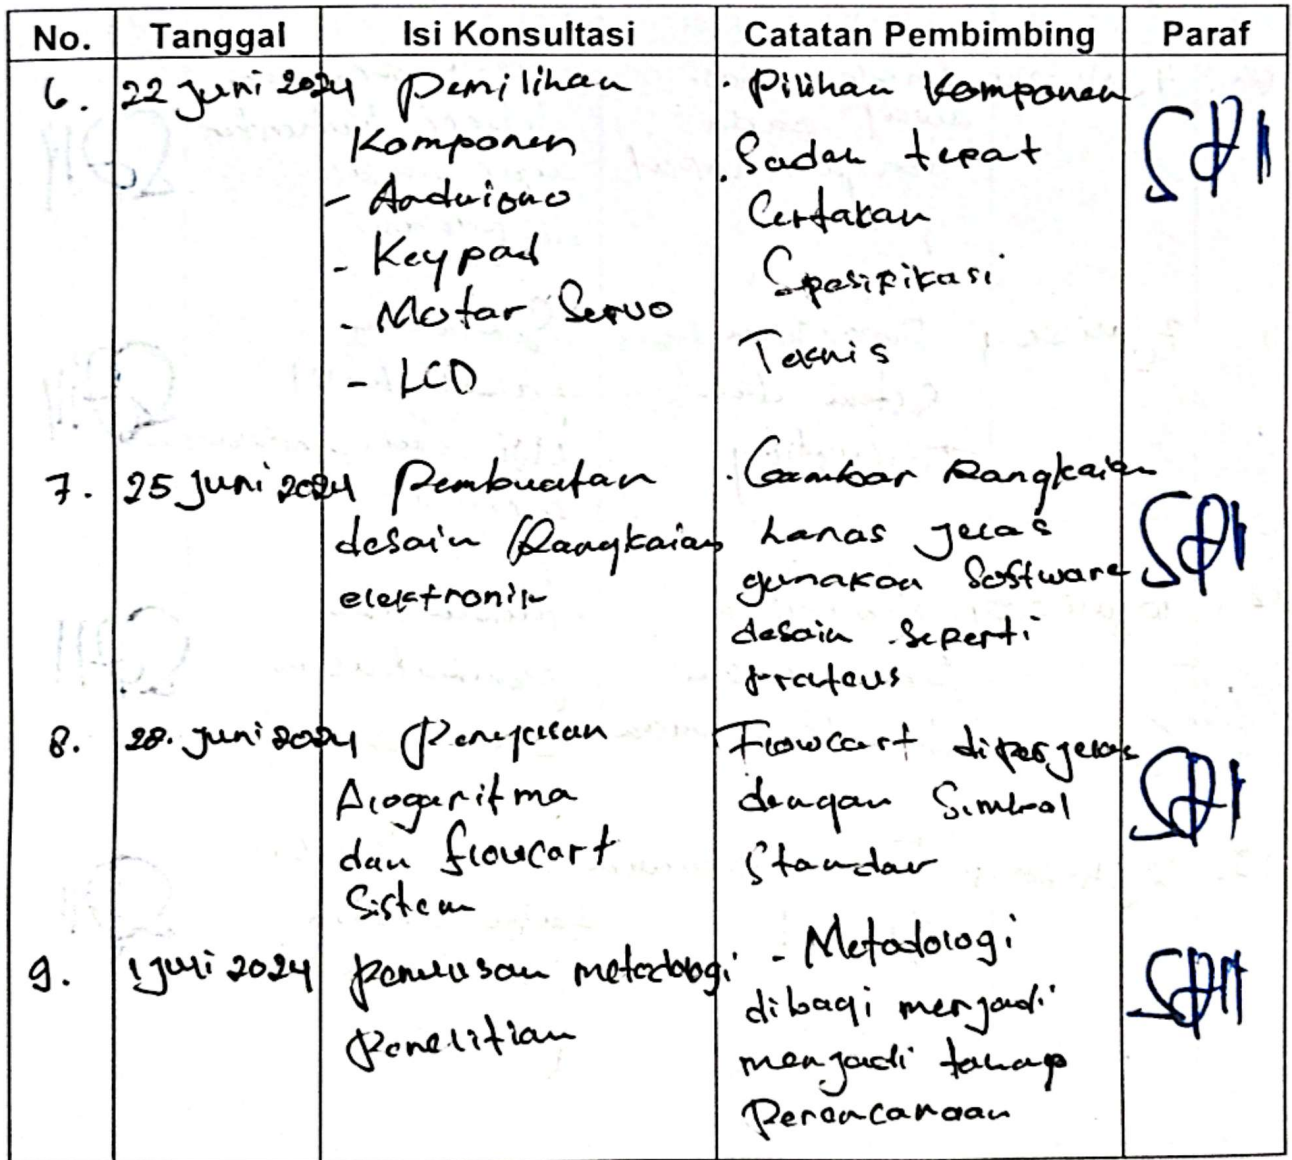 No. Tanggal Isi Konsultasi Catatan Pembimbing Paraf
6. 22 Juni 2024 Pemilihan
Komponen
- Arduiono
- Keypad
- Motor Servo
- LCD
. Pilihan Komponen
. Sudah tepat
Certakan
Spesifikasi
Teknis
7. 25 Juni 2024 Pembuatan
desain Rangkaian
elektronik
. Gambar Rangkaian
harus jelas
gunakan Software
desain seperti
Proteus
8. 28. Juni 2024 Penyusan
Alogaritma
dan flowcart
Sistem
Flowcart diperjelas
dengan Simbol
Standar
9. 1 Juli 2024 penulisan metodologi
Penelitian
- Metodologi
dibagi menjadi
menjadi tahap
Perencanaan